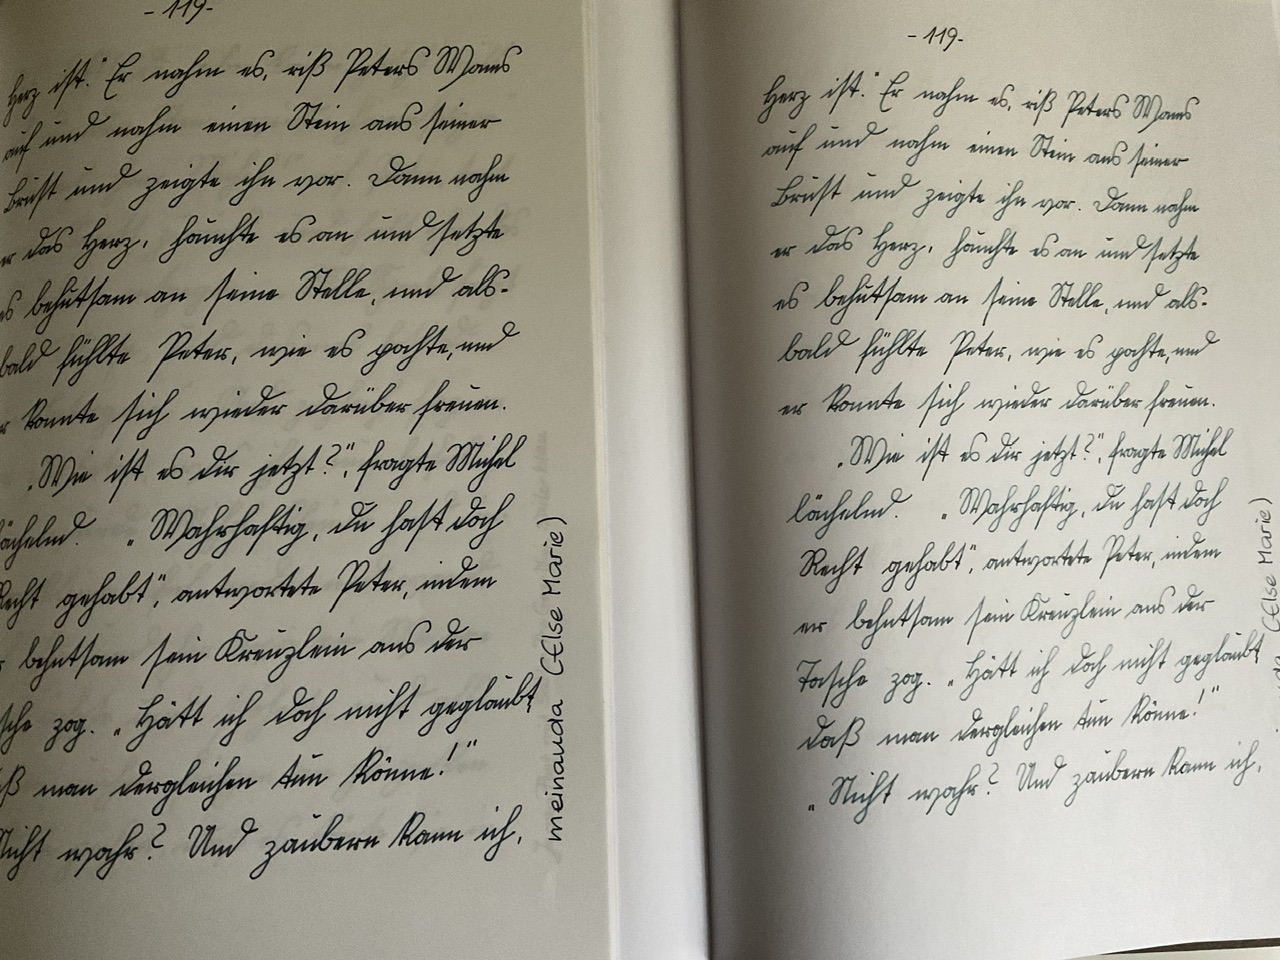 - 119 -
Herz ist." Er nahm es, riß Peters Wams
auf und nahm einen Stein aus seiner
Brust und zeigte ihn vor. Dann nahm
er das Herz, hauchte es an und setzte
es behutsam an seine Stelle, und als-
bald fühlte Peter, wie es pochte, und
er konnte sich wieder darüber freuen.
„Wie ist es dir jetzt?", fragte Michel
lächelnd. „Wahrhaftig, du hast doch
Recht gehabt", antwortete Peter, indem
er behutsam sein Kreuzlein aus der
Tasche zog. „Hätt ich doch nicht geglaubt
daß man dergleichen tun könne!"
„Nicht wahr? Und zaubern kann ich,
meinauda (Else Marie)
- 119 -
Herz ist." Er nahm es, riß Peters Wams
auf und nahm einen Stein aus seiner
Brust und zeigte ihn vor. Dann nahm
er das Herz, hauchte es an und setzte
es behutsam an seine Stelle, und als-
bald fühlte Peter, wie es pochte, und
er konnte sich wieder darüber freuen.
„Wie ist es dir jetzt?", fragte Michel
lächelnd. „Wahrhaftig, du hast doch
Recht gehabt", antwortete Peter, indem
er behutsam sein Kreuzlein aus der
Tasche zog. „Hätt ich doch nicht geglaubt
daß man dergleichen tun könne!"
„Nicht wahr? Und zaubern kann ich,
(Else Marie)